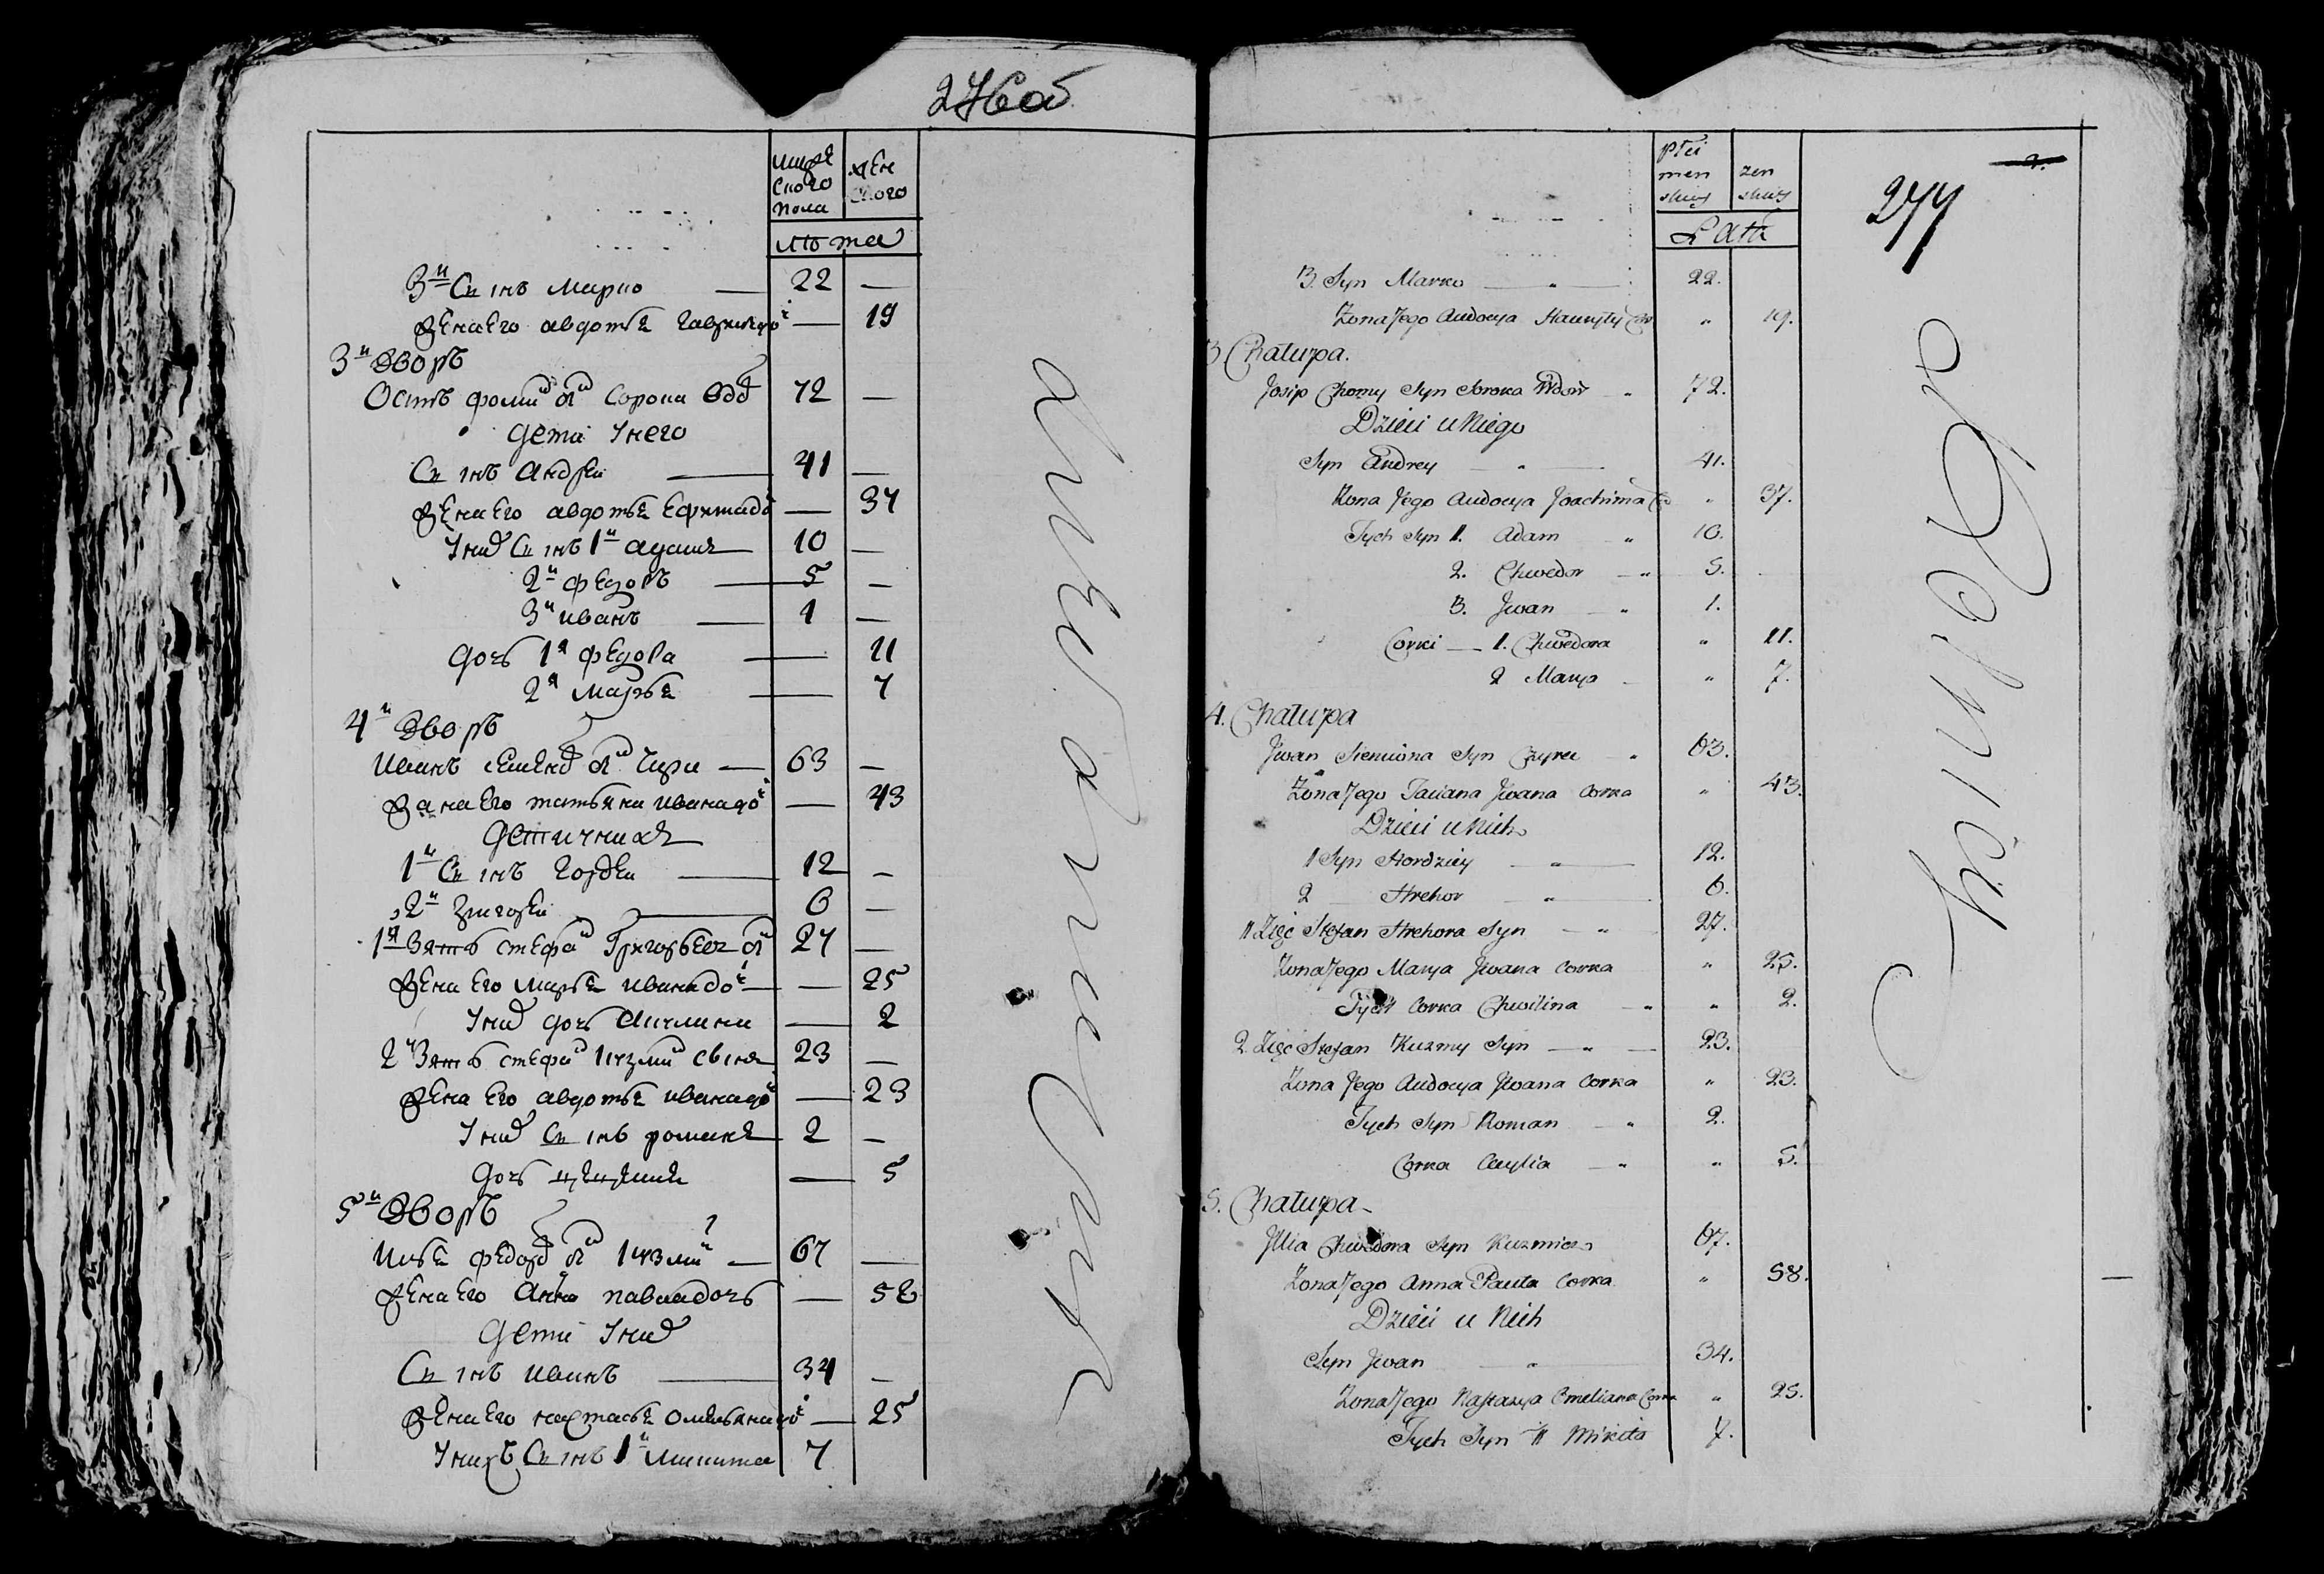 276об
мужескаго пола
женскаго
лѣта
3й Сынъ Марко — 22 —
Жена Его авдотья — 19
3й Дворъ
Осипъ фомин Сын Сорока Вдов 72 —
Дети Унего
Сынъ Андрей — 41 —
Жена Его авдотья Ефимадо — 37
Уних Сынъ 1й адамъ — 10 —
2й федоръ — 5 —
3й иванъ — 1 —
дочь 1я федора — 11
2я марья — 7
4й Дворъ
Иванъ семенов Сын — 63 —
Жена Его татьяна ивана до — 43
Дети у нихъ
1й Сынъ Гордей — 12 —
2й Григорей — 6 —
1й Зять стефан Григорьев Сын 27 —
Жена Его Марья ивана до — 25
Уних дочь Акилина — 2
2й Зять стефан кузмин Сынъ 23 —
Жена Его авдотья ивана до — 23
Уних Сынъ романъ 2 —
дочь — 5
5й Дворъ
Илья федоров Сын кузмич — 67 —
Жена Его Анна павла дочь — 58
Дети Уних
Сынъ иванъ — 34 —
Жена Его настасья омельяна до — 25
Унихъ Сынъ 1й микита 7
Anszolowicza
płci menskiey
zenskiey
Lata
277
3. Syn Marko — " — 22.
Zona Jego Audocya Hawryły Cor " 19.
3 Chałupa.
Josip Chomy Syn Soroka Wdow " 72.
Dzieci u Niego
Syn Andrey — " — 41.
Zona Jego Audocya Joachima Co " 37.
Tych Syn 1. Adam " 10.
2. Chwedor — " 5.
3. Jwan — " 1.
Corki — 1. Chwedora " 11.
2 Marya — " 7.
4. Chałupa
Jwan Siemiona Syn " 63.
Zona Jego Taciana Jwana Corka " 43.
Dzieci u Nich
1 Syn Hordziey — " — 12.
2 Hrehor — " — 6.
1 Zięć Stefan Hrehora Syn — " — 27.
Zona Jego Marya Jwana Corka " 25.
Tych Corka Chwilina — " " 2.
2. Zięć Stefan Kuzmy Syn — " — 23.
Zona Jego Audocya Jwana Corka " 23.
Tych Syn Roman — " 2.
Corka Cecylia — " " 5.
5. Chałupa —
Jllia Chwedora Syn Kuzmicz 67.
Zona Jego Anna Pawła Corka " 58.
Dzieci u Nich
Syn Jwan — " — 34.
Zona Jego Nastazya Omeliana Corka " 25.
Tych Syn 1 Mikita 7.